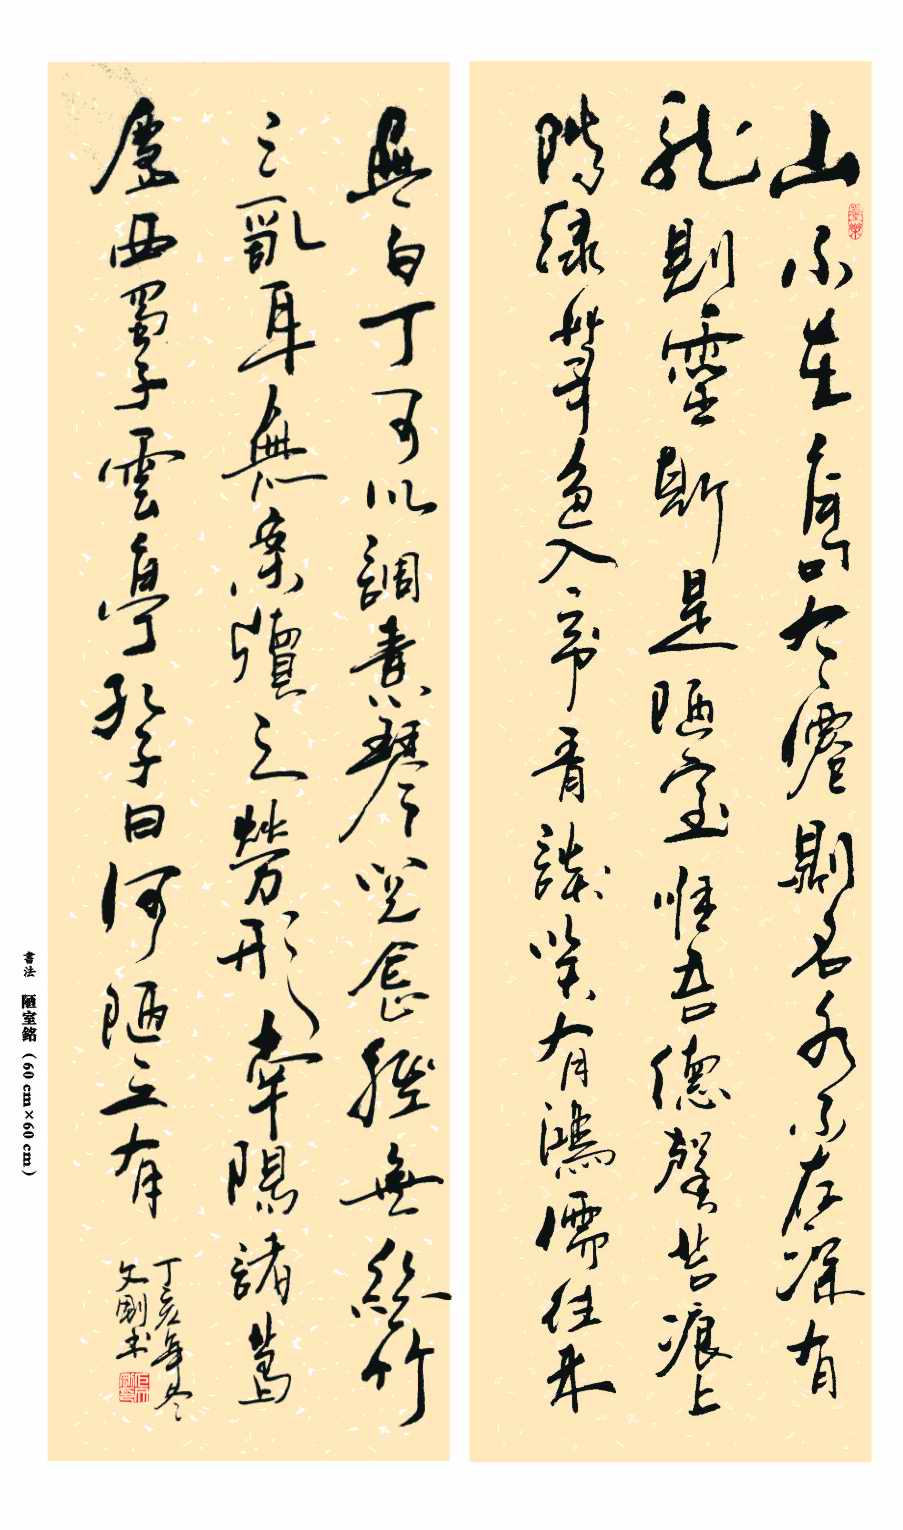 山不在高有僊則名水不在深有
龍則靈斯是陋室惟吾德馨苔痕上
階緑草色入帘青談笑有鴻儒往来
無白丁可以調素琴閲金經無絲竹
之亂耳無案牘之勞形南陽諸葛
廬西蜀子雲亭孔子曰何陋之有
丁亥年冬
文剛书
書法 陋室銘（60 cm×60 cm）